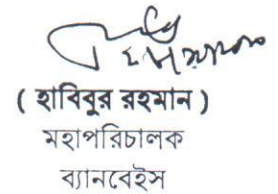 ( হাবিবুর রহমান )
মহাপরিচালক
ব্যানবেইস